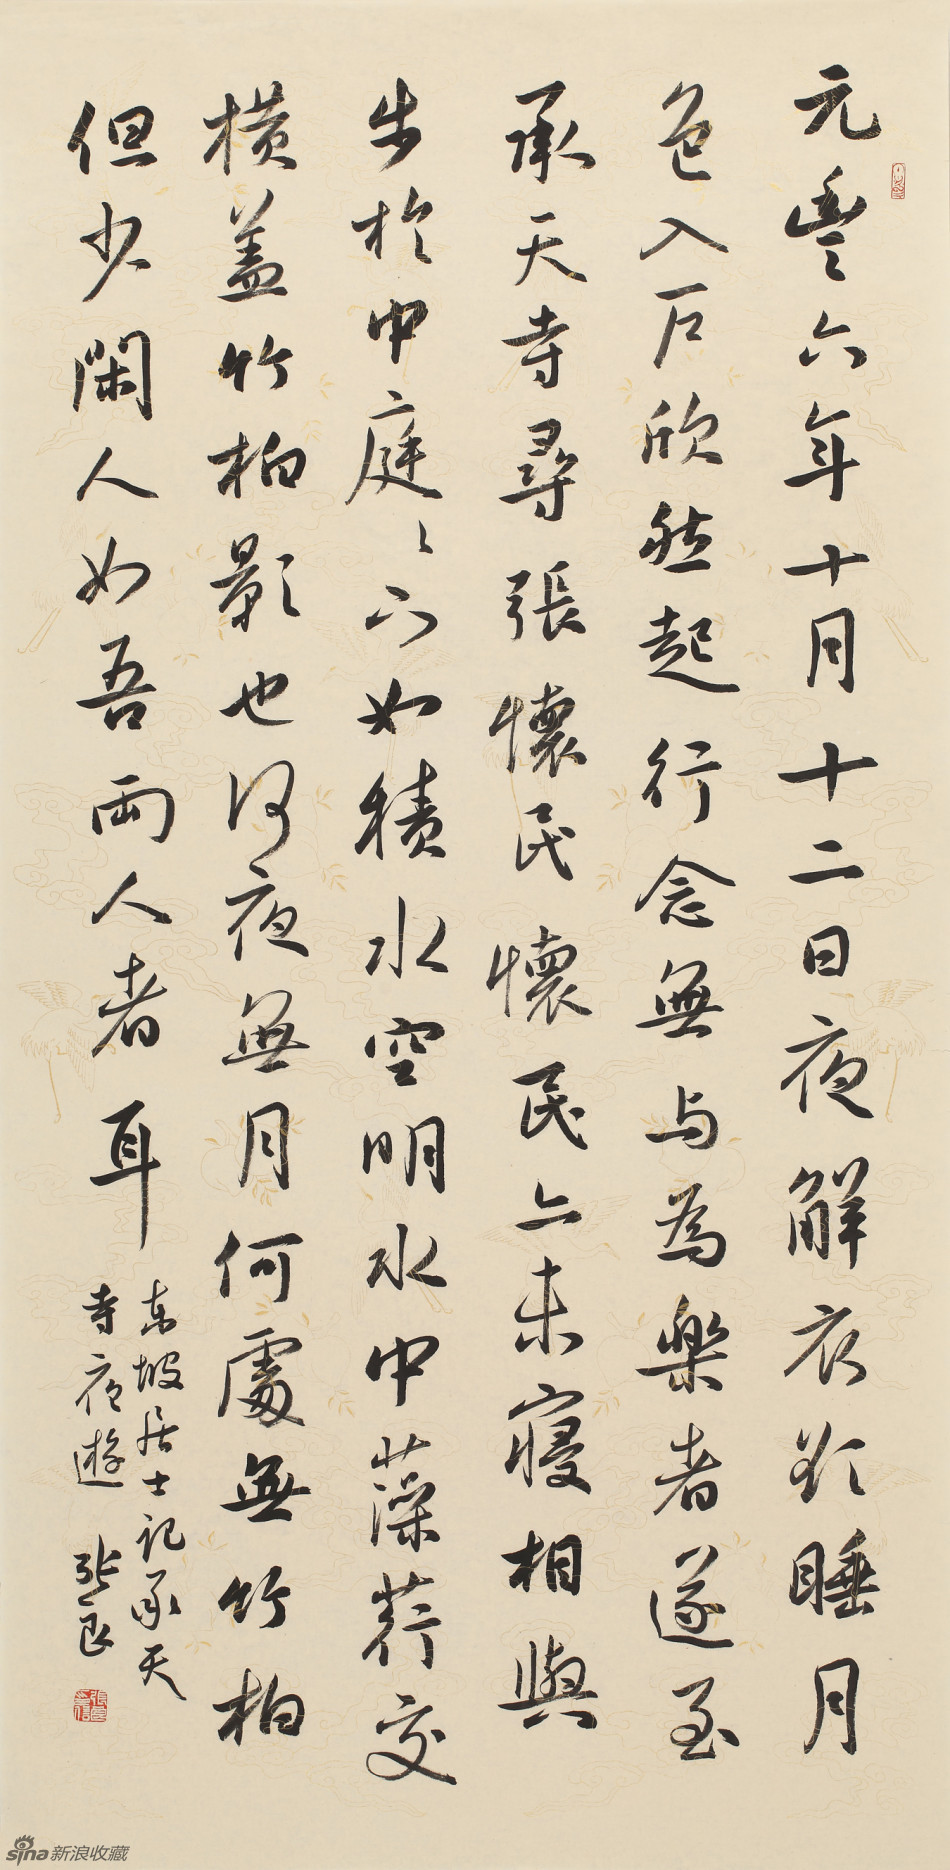 元豐六年十月十二日夜解衣欲睡月
色入戶欣然起行念無与為樂者遂至
承天寺尋張懷民懷民亦未寢相與
步於中庭〻下如積水空明水中藻荇交
橫盖竹柏影也何夜無月何處無竹柏
但少閑人如吾兩人者耳
东坡居士记承天
寺夜遊 張良
sina新浪收藏